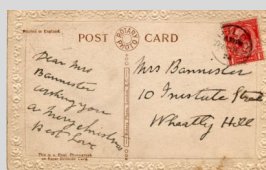 Printed in England
POST CARD
ROTARY PHOTO
Dear Mrs
Bannister
wishing you
a Merry Christmas
Best Love
Mrs Bannister
10 Institute Street
Wheatly Hill
This is a Real Photograph